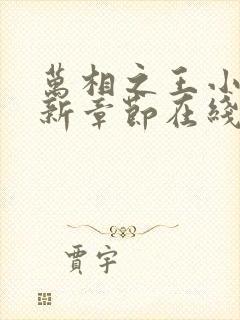 萬相之王小
新章節在綫
賈宇